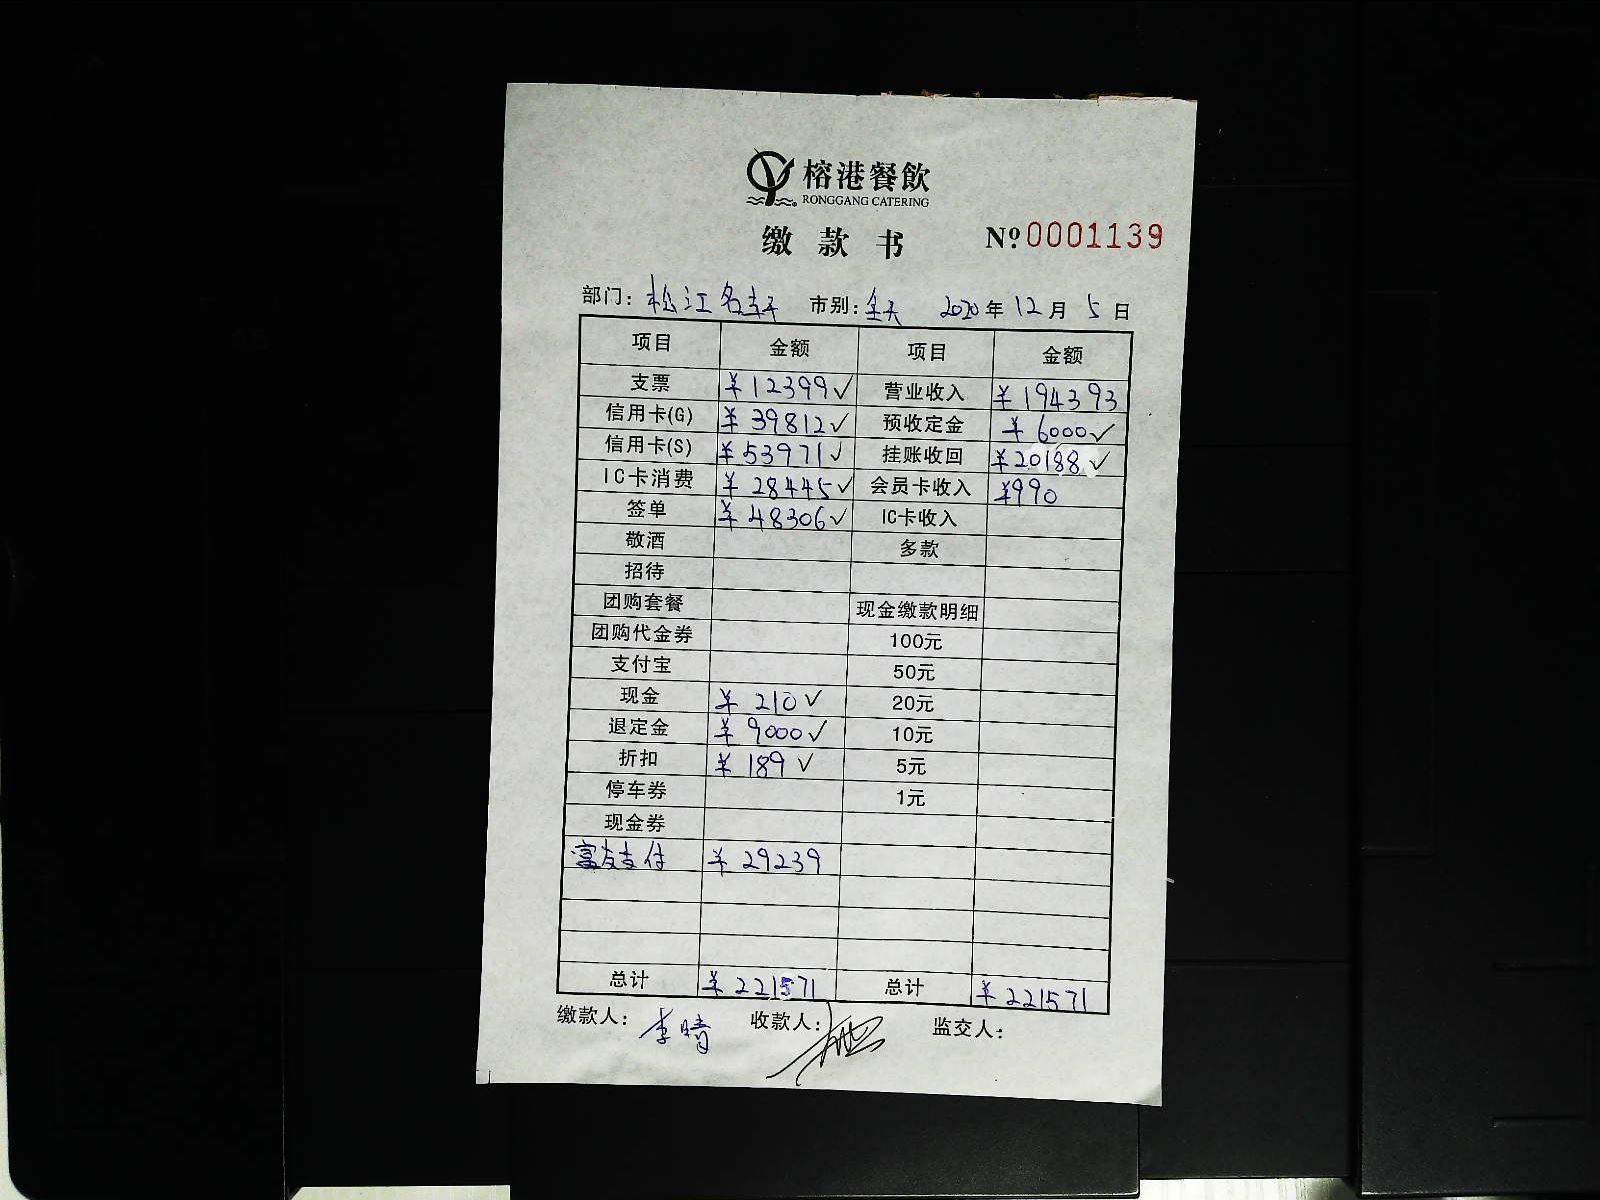 榕港餐飲
RONGGANG CATERING
缴款书 №0001139
部门：松江名轩 市别：全天 2020年12月5日
项目 金额 项目 金额
支票 ¥12399✓ 营业收入 ¥194393
信用卡(G) ¥39812✓ 预收定金 ¥6000✓
信用卡(S) ¥53971✓ 挂账收回 ¥20188✓
IC卡消费 ¥28445✓ 会员卡收入 ¥990
签单 ¥48306✓ IC卡收入
敬酒 多款
招待
团购套餐 现金缴款明细
团购代金券 100元
支付宝 50元
现金 ¥210✓ 20元
退定金 ¥9000✓ 10元
折扣 ¥189✓ 5元
停车券 1元
现金券
富友支付 ¥29239
总计 ¥221571 总计 ¥221571
缴款人：李晴 收款人： 监交人：